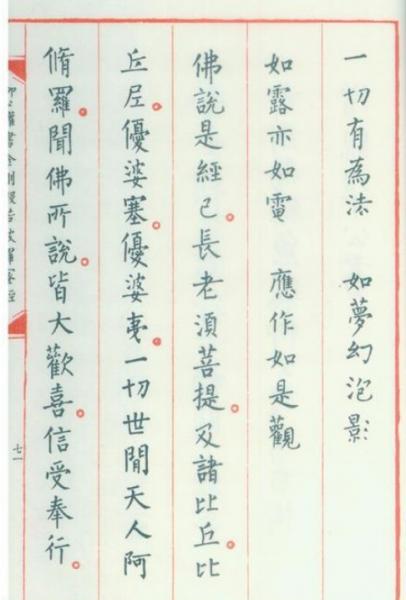 一切有為法 如夢幻泡影
如露亦如電 應作如是觀
佛說是經已。長老須菩提。及諸比丘。比
丘尼。優婆塞。優婆夷。一切世間天人阿
脩羅聞佛所說。皆大歡喜。信受奉行。
金剛般若波羅蜜經
七一